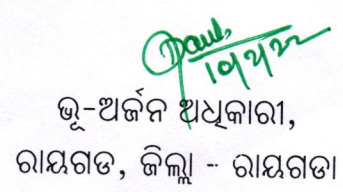 ଭୂ-ଅର୍ଜନ ଅଧିକାରୀ,
ରାୟଗଡ, ଜିଲ୍ଲା - ରାୟଗଡା